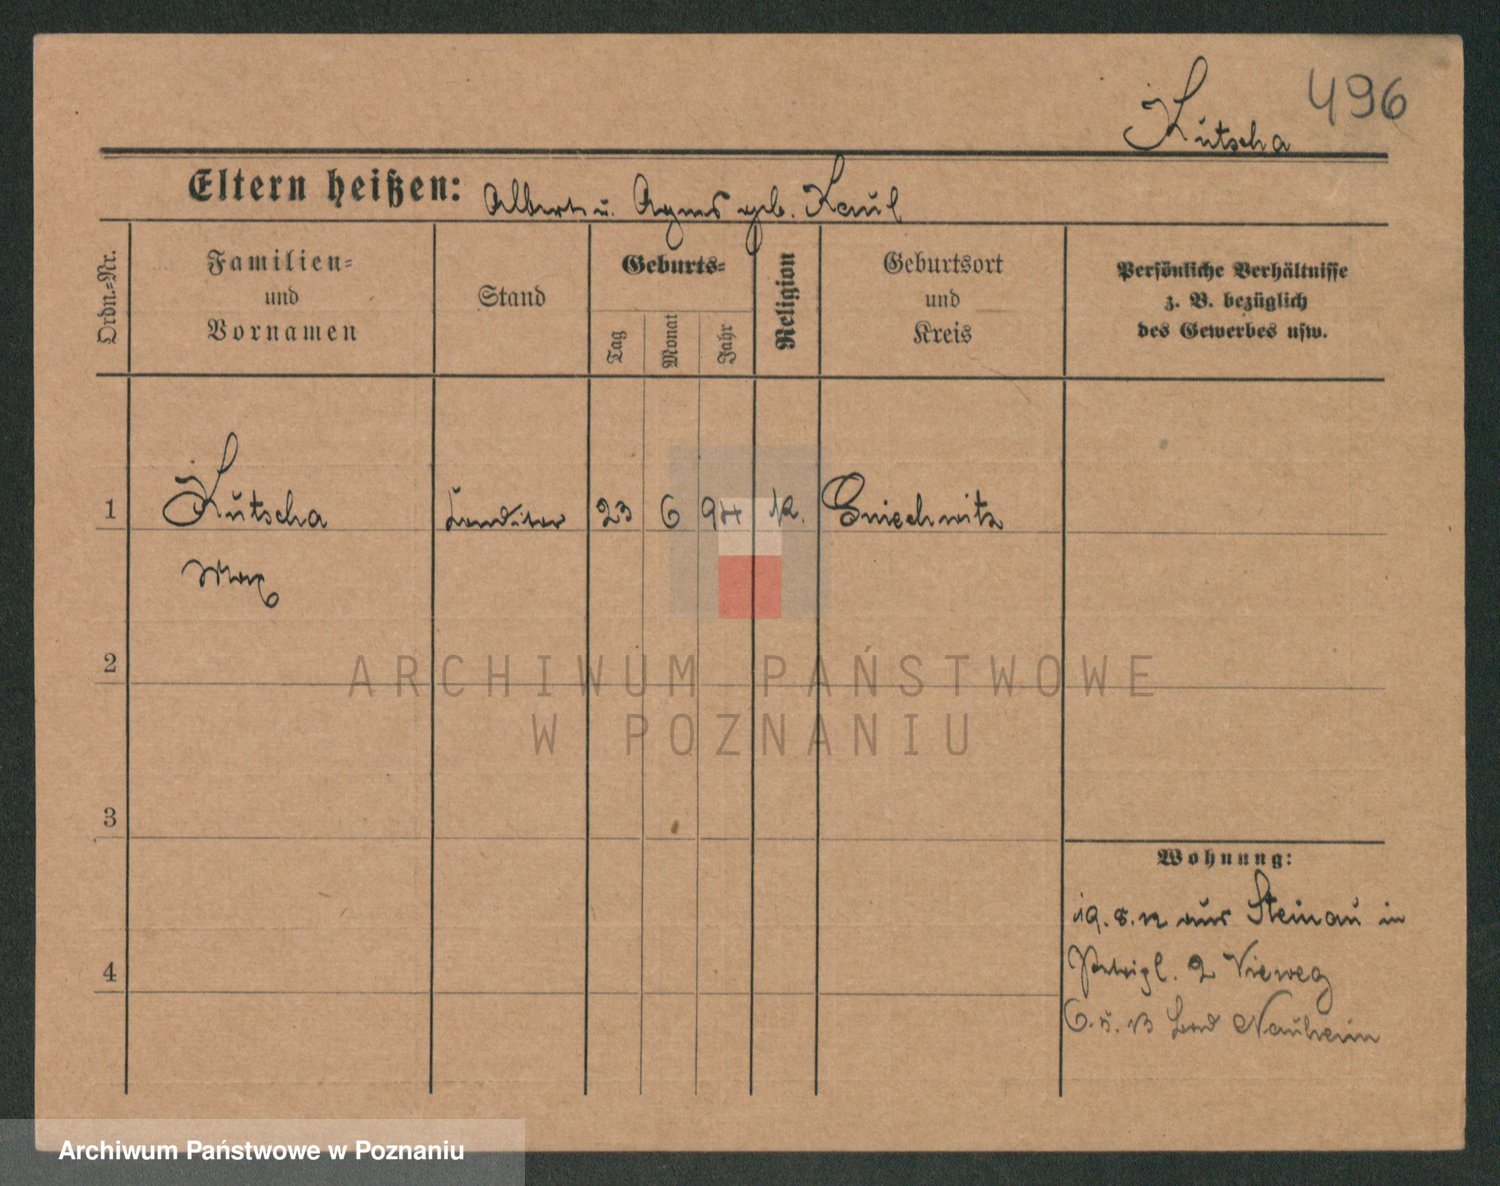 496
Kutscha
Eltern heißen: Albert u. Agnes geb. Kaul
Ordn.-Nr.
Familien-
und
Vornamen
Stand
Geburts-
Tag
Monat
Jahr
Religion
Geburtsort
und
Kreis
Persönliche Verhältnisse
z. B. bezüglich
des Gewerbes usw.
1 Kutscha Konditor 23 6 94 k. Gniechwitz
Max
2
3
4
Wohnung:
19. 8. 12 aus Steinau in
2 Vieweg
6. 5. 13 Bad Nauheim
ARCHIWUM PAŃSTWOWE
W POZNANIU
Archiwum Państwowe w Poznaniu